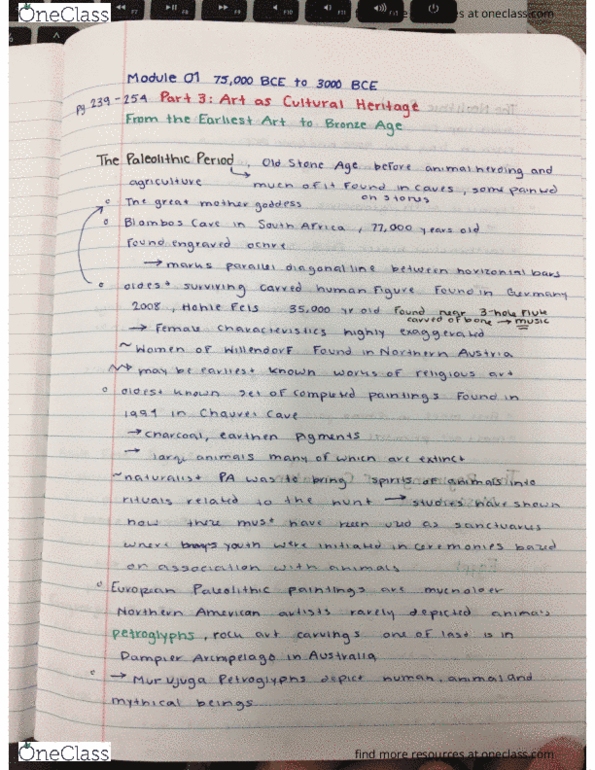 OneClass
es at oneclass.com
Module 01 75,000 BCE to 3000 BCE
pg 239-254 Part 3: Art as Cultural Heritage
From the Earliest Art to Bronze Age
The Paleolithic Period, Old Stone Age before animal herding and
agriculture → much of it found in caves, some painted
on stones
The great mother goddess
Blombos Cave in South Africa, 77,000 years old
found engraved ochre
→ marks parallel diagonal line between horizonial bars
oldest surviving carved human figure found in Germany
2008, Hohle Fels 35,000 yr old found near 3-hole flute
carved of bone → music
→ Female characteristics highly exaggerated
~ Women of Willendorf Found in Northern Austria
may be earliest known works of religious art
oldest known set of completed paintings Found in
1994 in Chauvet Cave
→ charcoal, earthen pigments
→ large animals many of which are extinct
~naturalist PA was to bring spirits of animals into
rituals related to the hunt → studies have shown
how these must have been used as sanctuaries
where youth were initiated in ceremonies based
on association with animals
European Paleolithic paintings are much older
Northern American artists rarely depicted animals
petroglyphs, rock art carvings one of last is in
Dampier Archipelago in Australia
→ Murujuga Petroglyphs depict human, animal and
mythical beings
OneClass
find more resources at oneclass.com